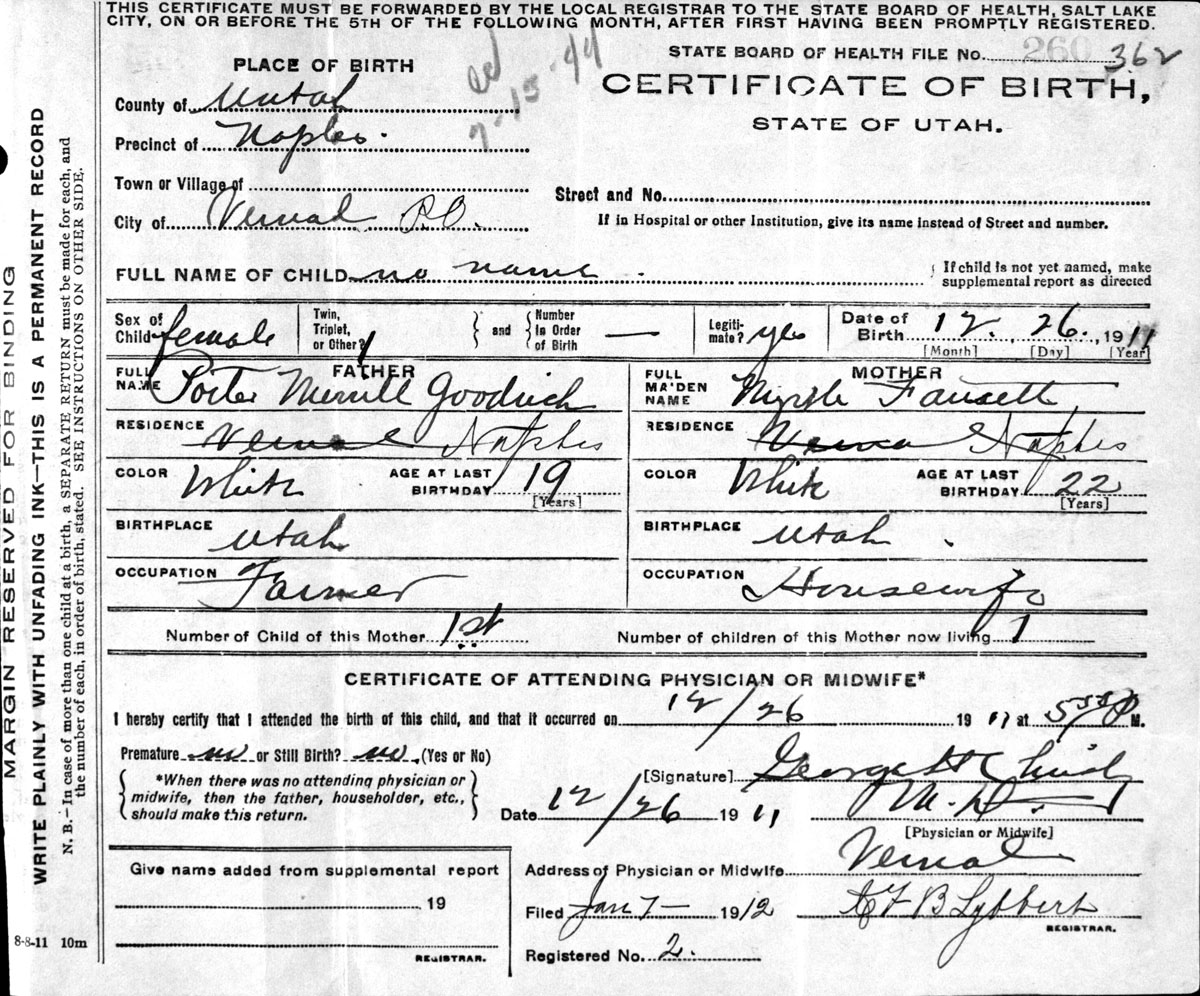 THIS CERTIFICATE MUST BE FORWARDED BY THE LOCAL REGISTRAR TO THE STATE BOARD OF HEALTH, SALT LAKE
CITY, ON OR BEFORE THE 5TH OF THE FOLLOWING MONTH, AFTER FIRST HAVING BEEN PROMPTLY REGISTERED.
STATE BOARD OF HEALTH FILE No. 260 362
PLACE OF BIRTH
7-15-44
CERTIFICATE OF BIRTH,
STATE OF UTAH.
County of
Precinct of Naples.
Town or Village of
Street and No.
City of Vernal P.O.
If in Hospital or other Institution, give its name instead of Street and number.
FULL NAME OF CHILD no name.
If child is not yet named, make
supplemental report as directed
Sex of Child female
Twin, Triplet, or Other? 1
and Number in Order of Birth —
Legitimate? yes
Date of Birth 12. 26. 1911
[Month] [Day] [Year]
FATHER
FULL NAME Porter Merrill Goodrich
MOTHER
FULL MAIDEN NAME Myrtle Fausett
RESIDENCE Vernal Naples
RESIDENCE Vernal Naples
COLOR White
AGE AT LAST BIRTHDAY 19
[Years]
COLOR White
AGE AT LAST BIRTHDAY 22
[Years]
BIRTHPLACE Utah
BIRTHPLACE Utah.
OCCUPATION Farmer
OCCUPATION Housewife
Number of Child of this Mother 1st
Number of children of this Mother now living 1
CERTIFICATE OF ATTENDING PHYSICIAN OR MIDWIFE*
I hereby certify that I attended the birth of this child, and that it occurred on 12/26 1911 at P M.
Premature no or Still Birth? no. (Yes or No)
*When there was no attending physician or
midwife, then the father, householder, etc.,
should make this return.
[Signature] George H Christy
M.D.
[Physician or Midwife]
Date 12/26 1911
Give name added from supplemental report
19
REGISTRAR.
Address of Physician or Midwife Vernal
Filed Jan 7— 1912
B Lybbert
REGISTRAR.
Registered No. 2.
8-8-11 10m
MARGIN RESERVED FOR BINDING
WRITE PLAINLY WITH UNFADING INK—THIS IS A PERMANENT RECORD
N. B.—In case of more than one child at a birth, a SEPARATE RETURN must be made for each, and
the number of each, in order of birth, stated. SEE INSTRUCTIONS ON OTHER SIDE.